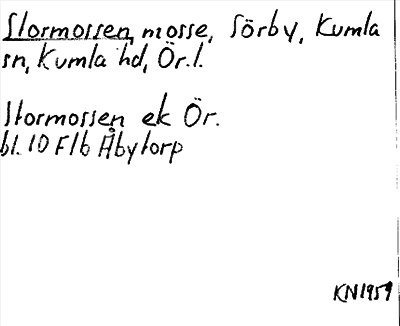 Stormossen, mosse, Sörby, Kumla
sn, Kumla hd, Ör.l.
Stormossen ek Ör.
bl. 10 F1b Åbytorp
KN1959